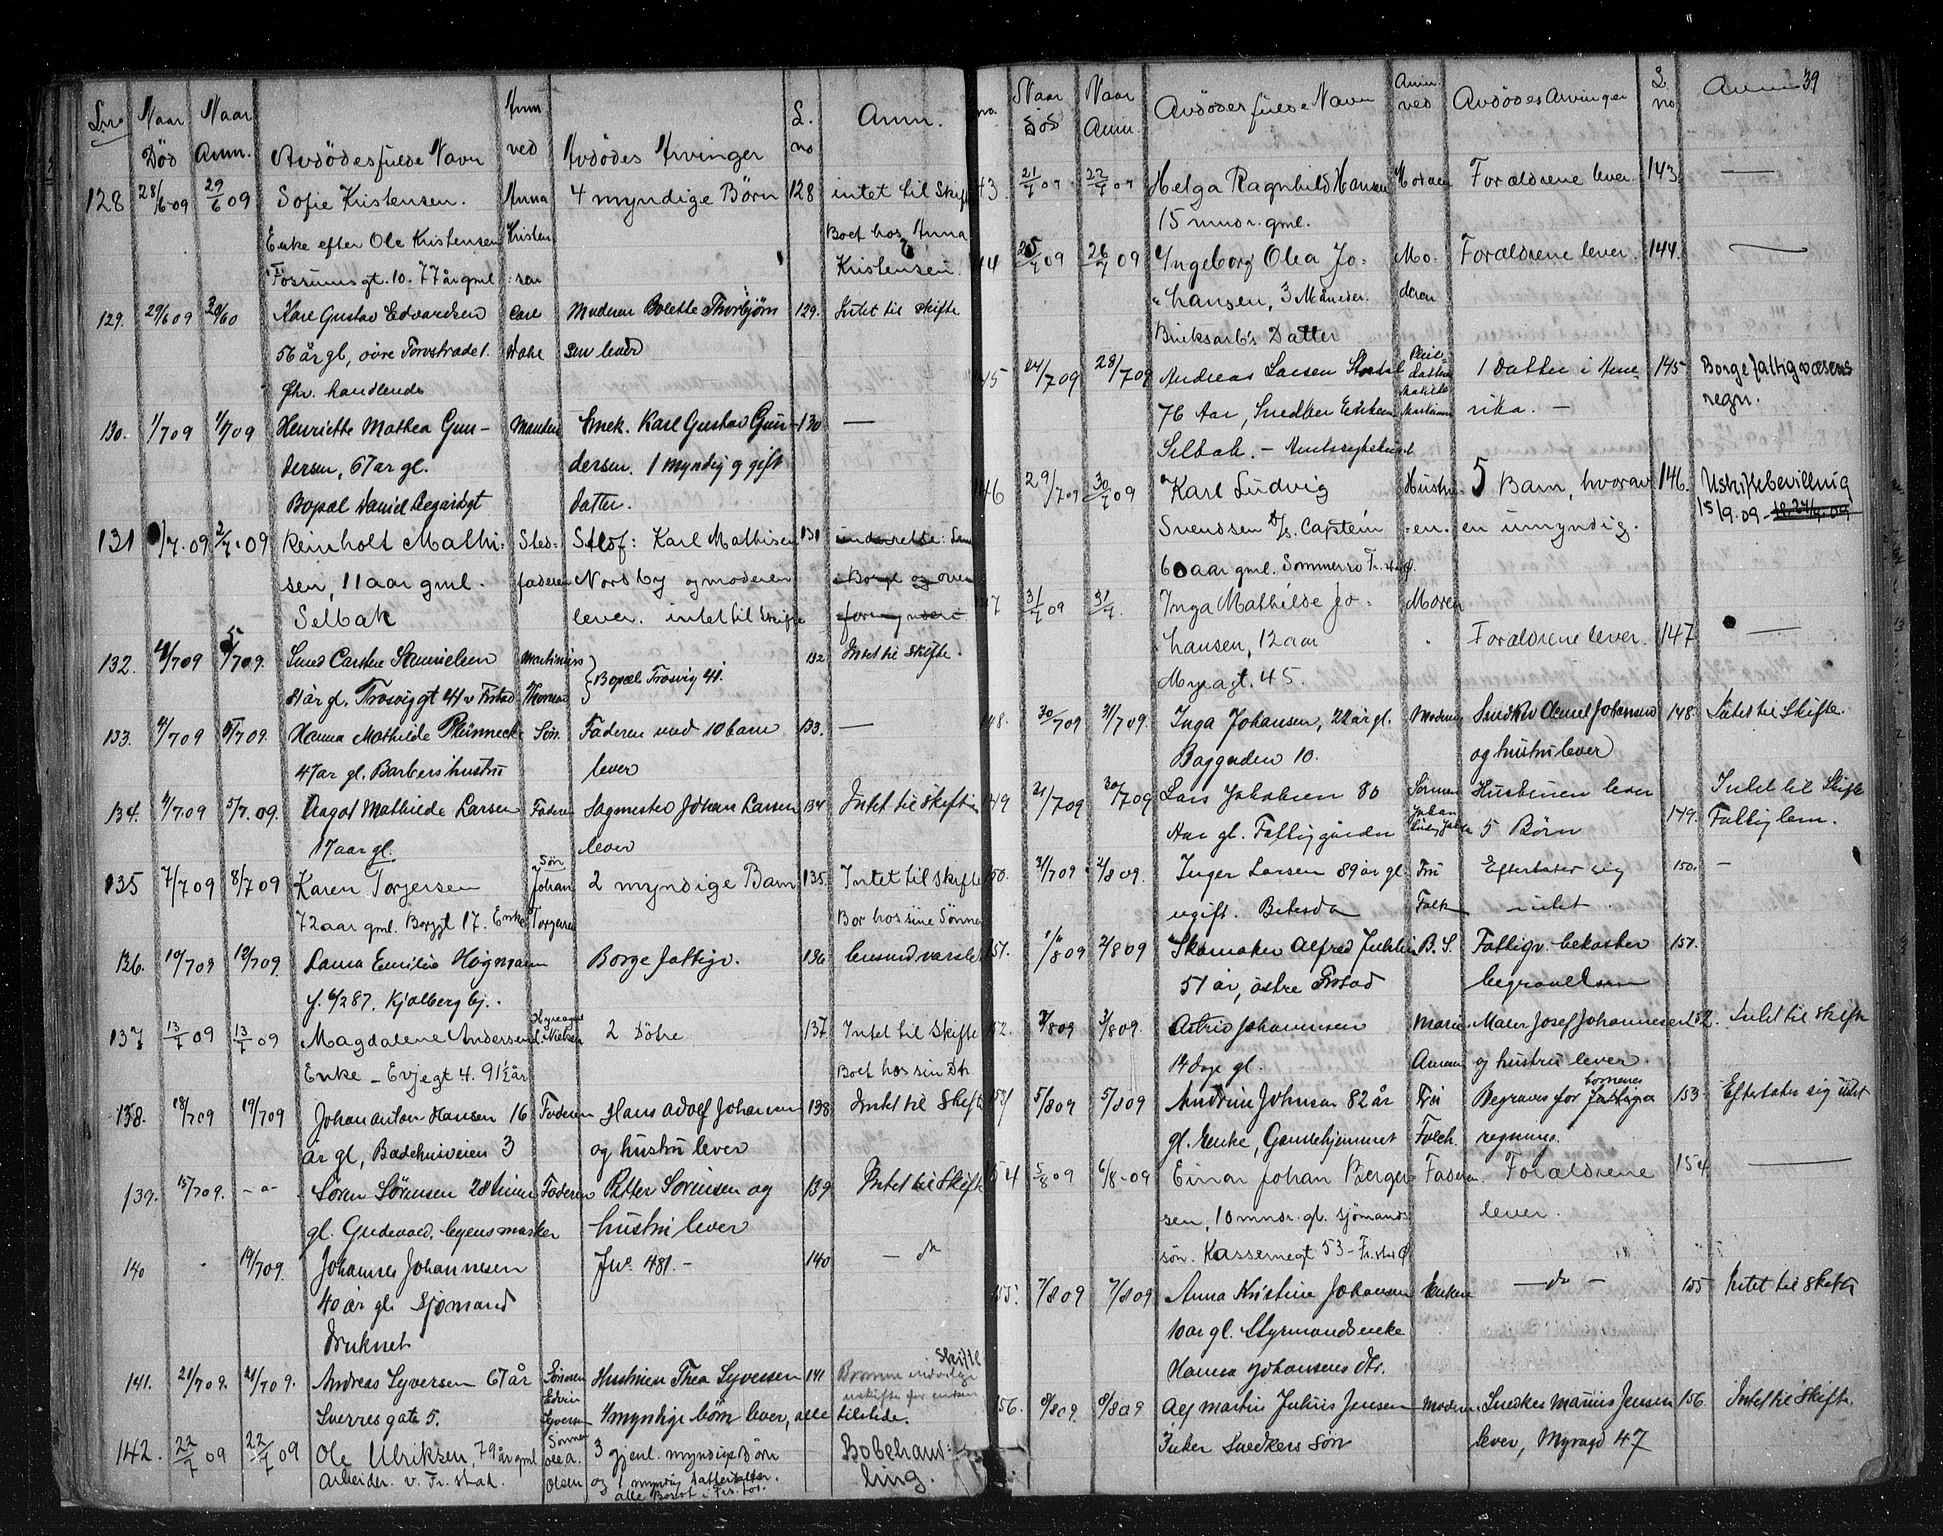 Lno Naar Død Naar Anm. Avdødes fulde Navn Anm ved Avdødes Arvinger L. no Anm.
128 28/6 09 29/6 09 Sofie Kristensen. Anna 4 myndige Børn 128 intet til Skifte
Enke efter Ole Kristensen Kristen Boet hos Anna
Fossumsgt. 10. 77 år gml sen Kristensen.
129. 29/6 09 Kare Gustav Edvardsen Carl Moderen Bolette Thorbjørn 129. Intet til skifte
56 år gl, øvre Torvstrade 1. sen lever
fhv. handlende
130. 1/7 09 1/7 09 Henriette Mathea Gun- Manden Smek. Karl Gustav Gun- 130 —
dersen, 67 ar gl. dersen. 1 myndig og gift
Bopæl David Aegaardsgt datter.
131 /7.09 2/7.09 Reinholt Mathi- Sted- Stedf: Karl Mathisen 131 underrette: Lens
sen, 11 aar gml. faderen Norsby og moderen i Borge og over
Selbak lever. intet til skifte formynderi
132. 4/7 09 5/7 09. Smed Carsten Samuelsen Martinius Bopæl Trosvig 41. 132 Intet til Skifte.
81 år gl. Trosviggt 41 v Frstad Thorsen
133. 4/7 09 5/7 09. Hanna Mathilde Plünnecke Søn. Faderen med 10 barn 133. —
47 ar gl. Barbers hustru lever
134. 4/7.09 5/7.09. Aagot Mathilde Larsen Faderen Sagmester Johan Larsen 134 Intet til skifte
17 aar gl. lever
135 7/7 09 8/7 09 Karen Torgersen Søn Johan 2 myndige Barn 135. Intet til skifte
72 aar gml. Borggt 17. Enke Torgersen Bor hos sine Sønner
136. 10/7 09 12/7 09. Laura Emilie Høgmann Borge fattigv. 136
f. 6/2 87. Kjølberg bj.
137 13/7 09 13/7 09 Magdalene Andersen Nielsen 2 Døtre 137 Intet til Skifte
Enke – Evjegt 4. 91½ år Boet hos sin Dtr
138. 18/7 09 19/7 09 Johan Anton Hansen 16 Faderen Hans Adolf Johansen 138 Intet til Skifte
år gl, Badehusveien 3 og hustru lever
139. 15/7 09. -"- Søren Sørensen 28 timer Faderen Petter Sørensen og 139 Intet til Skifte
gl. Gudevold, hustru lever
140 19/7 09. Johannes Johannesen Jno. 481. – 140 – do
40 år gl. Sjømand
druknet
141. 21/7 09. 21/7 09. Andreas Syversen 67 år Sønnen Hustruen Thea Syversen 141 Skifte
Sverresgate 5. Edvin Syversen 4 myndige børn lever, alle tilstede.
142. 22/7 09 22/7 09 Ole Ulriksen, 79 år gml Sønnen 3 gjenl. myndige Børn Bobehand-
Arbeider. v. Fr.stad. Ole A. Olsen og 1 myndig datterdatter. ling.
alle Bosat i Frs.
no. Naar Død Naar Anm. Avdødes fulde Navn Anm. ved Avdødes Arvinger L. no Anm 39
43. 21/7 09 22/7 09 Helga Ragnhild Hansen Moderen Forældrene lever. 143. —
15 mndr. gml.
44 25/7 09 26/7 09 Ingeborg Olea Jo- Mo- Forældrene lever. 144. —
hansen, 3 Måneder. deren
Bruksarb's Datter
45 24/7 09 28/7 09 Andreas Larsen 1 datter i Ame- 145 Borge fattigvæsens
76 Aar, Snedker Enkem. rika. – regn.
Selbak. – Amtssygehuset
146 29/7 09 30/7 09 Karl Ludvig Hustru- 5 Barn, hvorav 146. Uskiftebevilling
Svendsen D/s. Captein en. en umyndig. 15/9.09 –
60 aar gml. Sommerro Fr.stad.
47 31/7 09 31/7. Inga Mathilde Jo- Moren
hansen, 12 aar Forældrene lever. 147 —
Myragt. 45.
148. 30/7 09 31/7 09. Inga Johansen, 22 år gl. Moderen Snedker Johansen 148. Intet til Skifte.
Baggaden 10. og hustru lever
149 21/7 09 30/7 09 Lars Jakobsen 80 Sønnen Hustruen lever Intet til Skifte
Aar gl. Fattiggården Johan 5 Børn 149. Fattiglem.
150. 31/7 09 2/8 09. Inger Larsen 89 år gl Fru Efterlater sig 150. –
ugift. Betesda Falk intet.
151. 1/8 09 2/8 09 Skomaker Alfred B. S. Fattigv. bekoster 151.
51 år, østre Frstad begravelsen
152. 2/8 09 3/8 09. Astrid Johannesen Marie Maler Josef Johannesen 152. Intet til skifte
14 dage gl. og hustru lever.
153 5/8 09 5/8 09 Andrine Johnsen 82 år Frøi Begraves for byernes fattiges 153 Efterlater sig intet
gl. Enke, Gamlehjemmet Folch. regning.
154 5/8 09 6/8-09 Einar Johan Berger- Faderen. Forældrene 154. —
sen, 10 mndr. gl. sjømands lever.
søn. Kassernegt 53 – Fr.stad
155. 7/8 09 7/8 09 Anna Kristine Johansen Enken – do – 155 Intet til skifte
10 ar gl. Styrmandsenke
Hanna Johansens dtr.
156. 8/8 09. 8/8 09 Alf Martin Julius Jensen Moderen Snedker Marius Jensen 156. Intet til Skifte.
Snedkers Søn lever, Myragd 47